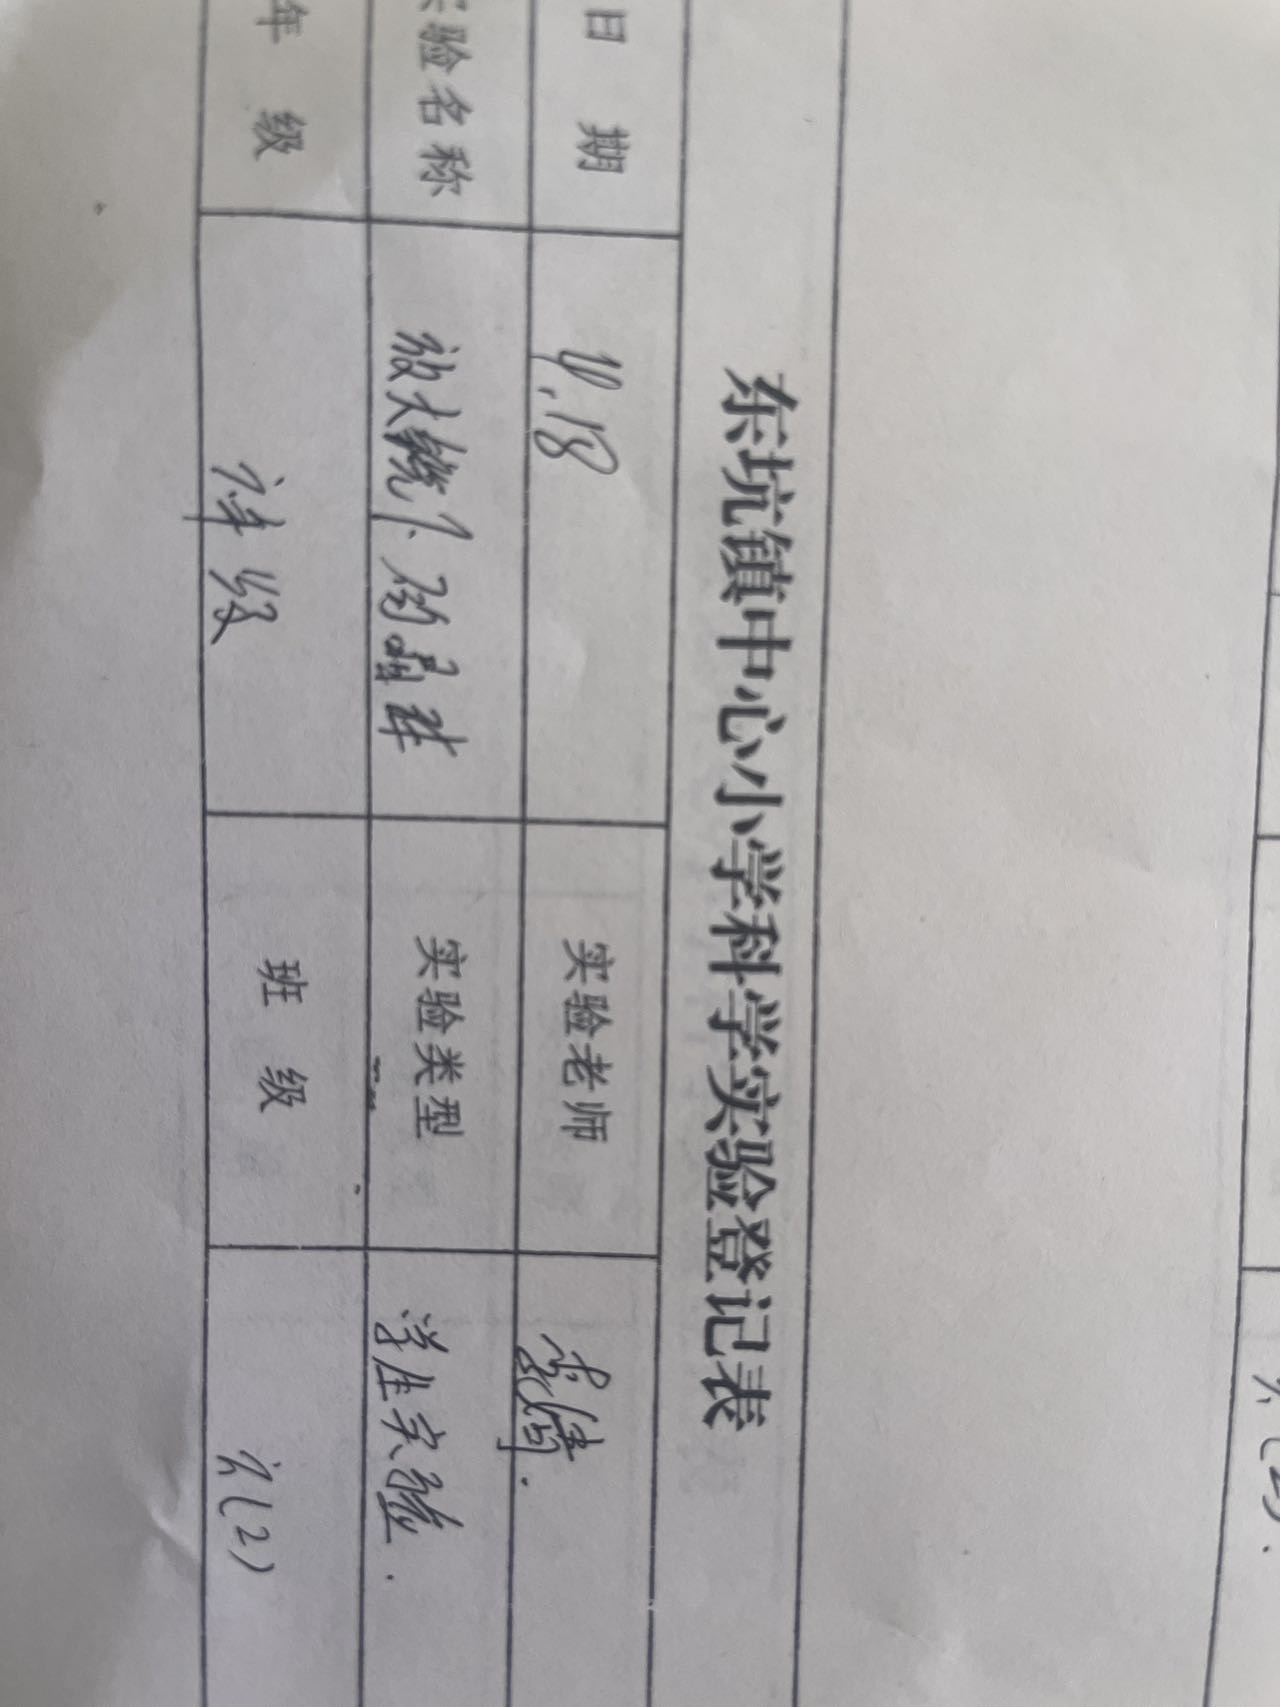 东坑镇中心小学科学实验登记表
日 期 4.18 实验老师
实验名称 放大镜下的晶体 实验类型 学生实验.
年 级 六年级 班 级 六(2)
六(2).